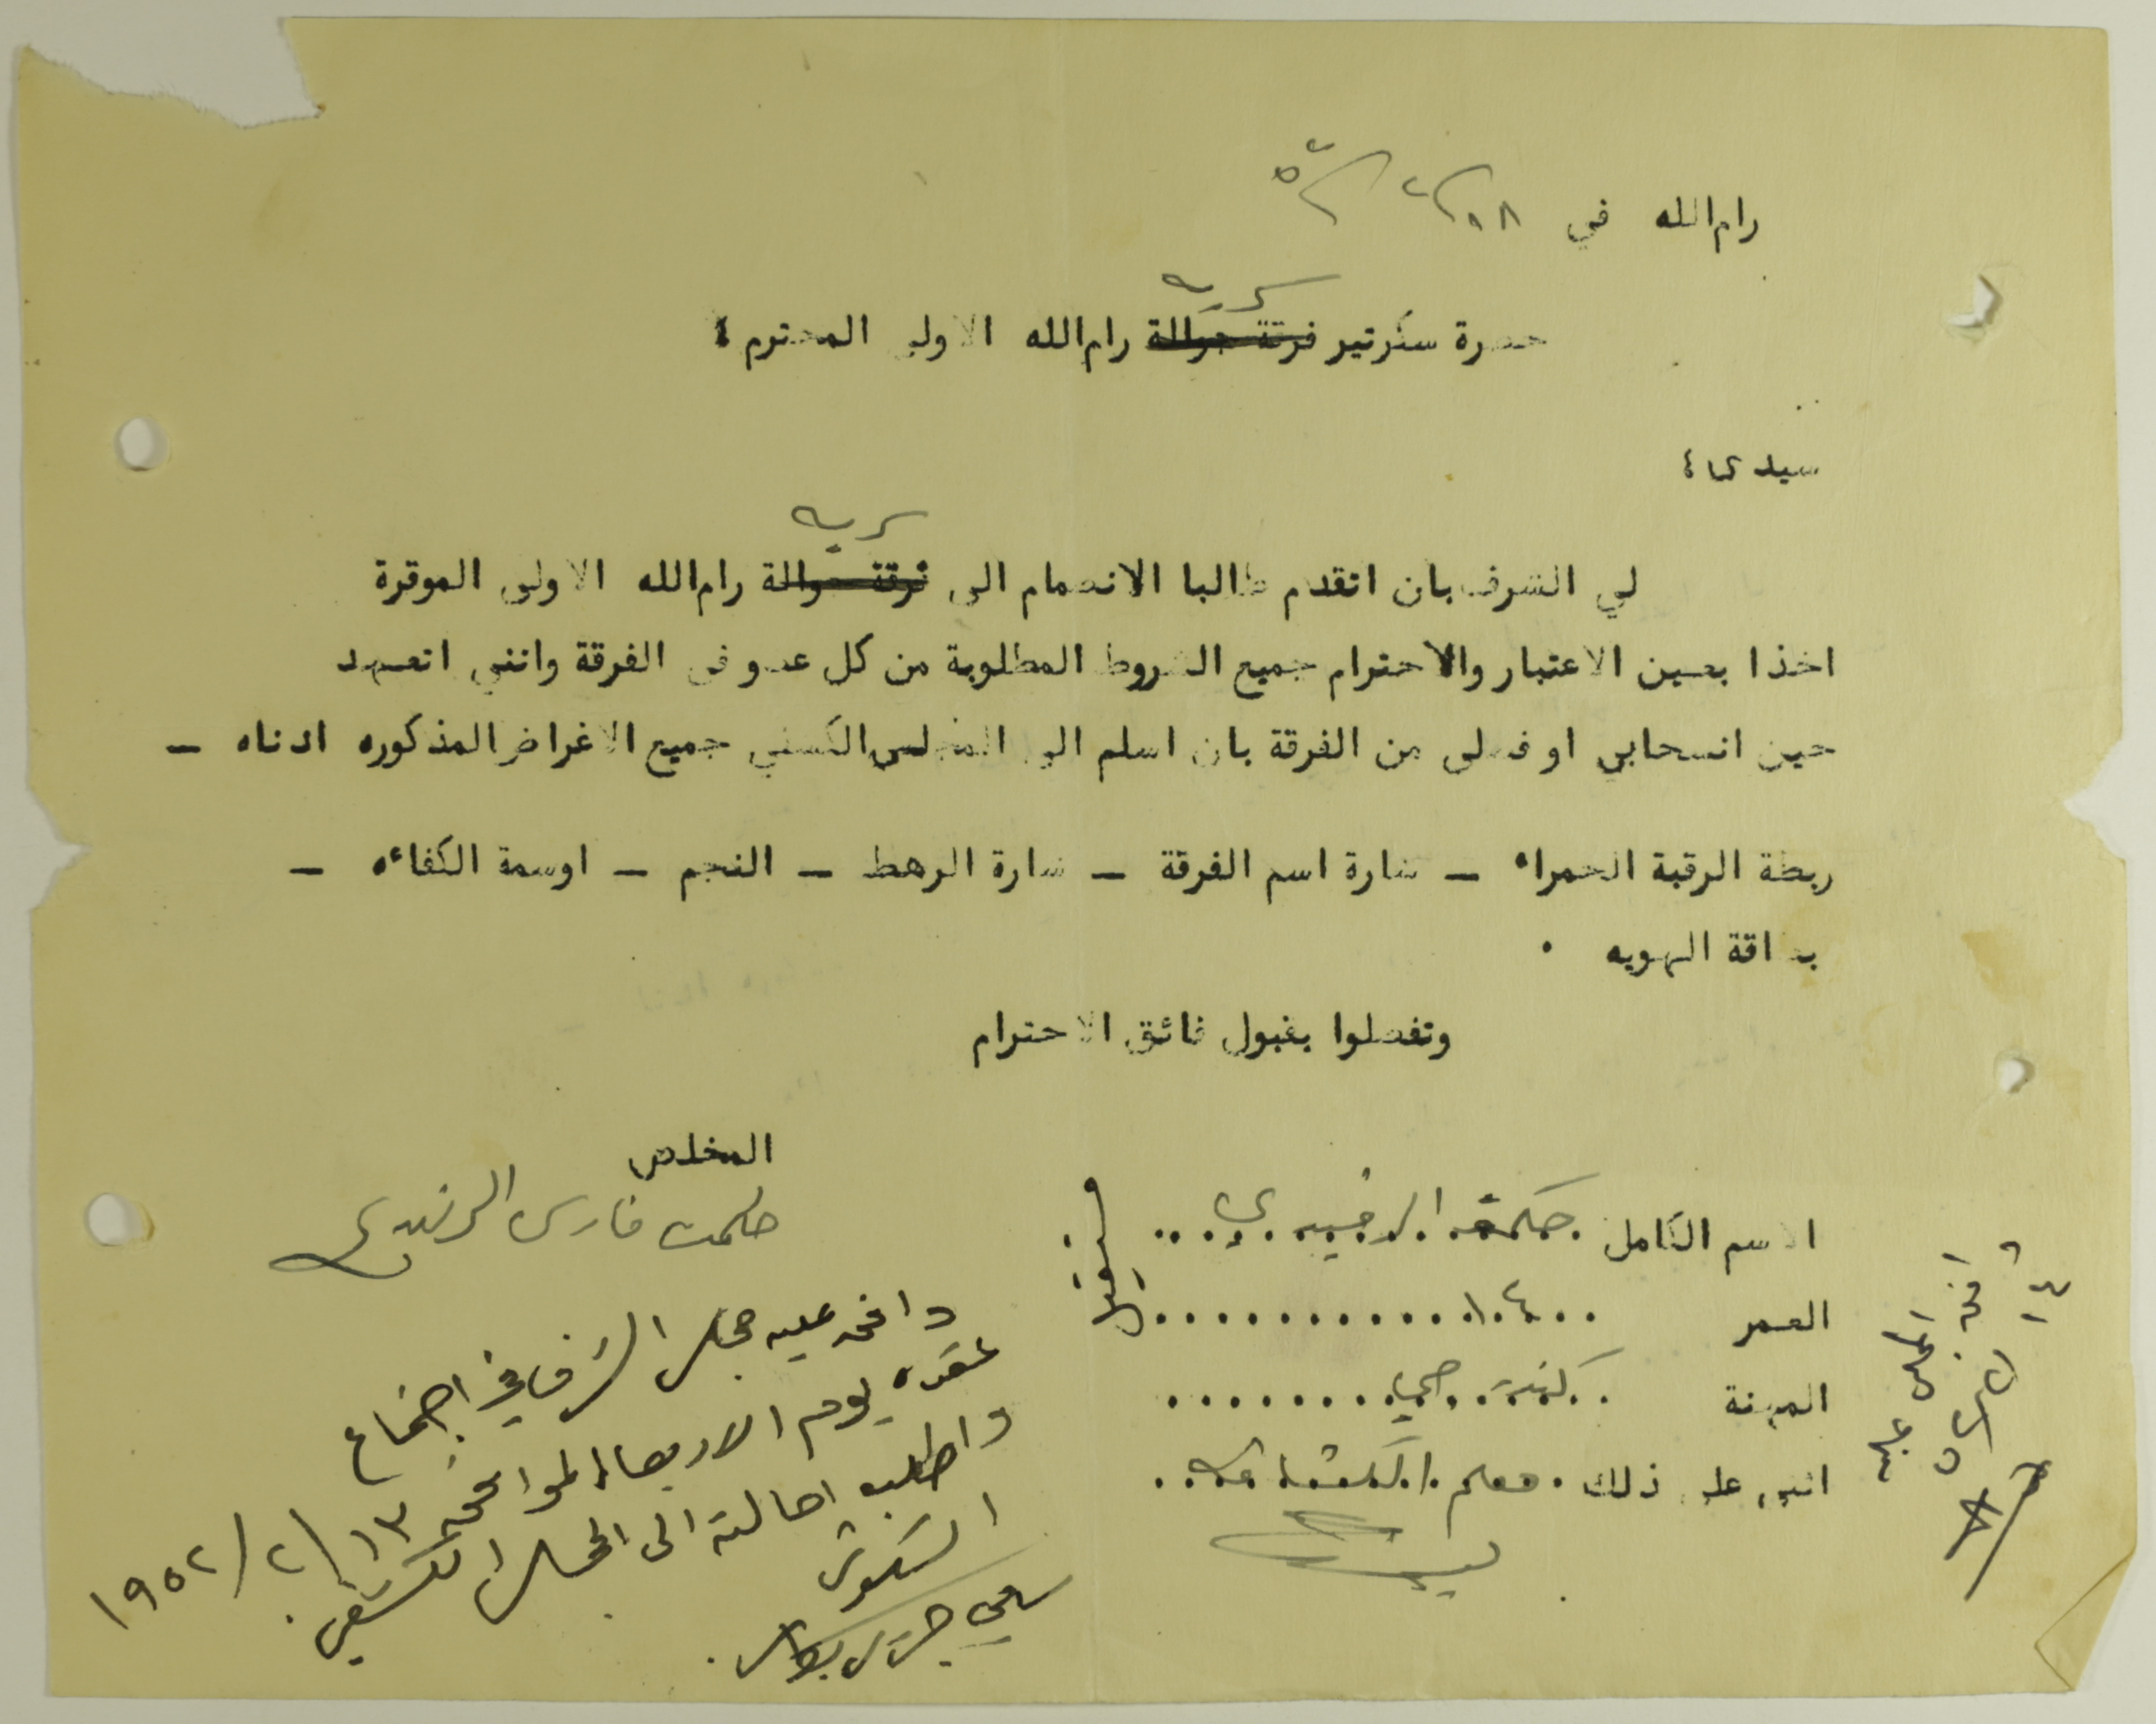 رام الله في ١٨/٢/٥٢
سريه
حضرة سكرتير فرقة جوالة رام الله الاولى المحترم ،
سيدي ،
سريه
لي الشرف بان اتقدم طالبا الانضمام الى فرقة جوالة رام الله الاولى الموقرة
اخذا بعين الاعتبار والاحترام جميع الشروط المطلوبة من كل عضو في الفرقة وانني اتعهد
حين انسحابي او فصلي من الفرقة بان اسلم الى المجلس الكشفي جميع الاغراض المذكوره ادناه –
ربطة الرقبة الحمراء – شارة اسم الفرقة – شارة الرهط – النجم – اوسمة الكفاءه –
بطاقة الهويه .
وتفضلوا بقبول فائق الاحترام
المخلص
حكمت فارس الرشيدي
الاسم الكامل حكمة الرشيدي
العمر ١٤
المهنة
اثنى على ذلك معلم الكشافة
وافق عليه مجلس الشرف في اجتماع
عقده يوم الاربعاء الموافق ١٣/٢/١٩٥٢
واطلب احالته الى المجلس الكشفي .
السكرتير
وافق المجلس عليه